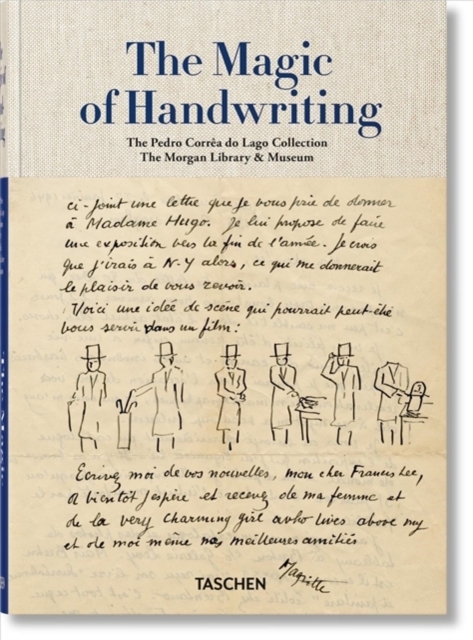 The Magic
of Handwriting
The Pedro Corrêa do Lago Collection
The Morgan Library & Museum
ci-joint une lettre que je vous prie de donner
à Madame Hugo. Je lui propose de faire
une exposition vers la fin de l'année. Je crois
que j'irais à N-Y alors, ce qui me donnerait
le plaisir de vous revoir.
Voici une idée de scène qui pourrait peut-être
vous servir dans un film:
Ecrivez moi de vos nouvelles, mon cher Francis Lee,
A bientôt j'espère et recevez de ma femme et
de la very charming girl who lives above my
et de moi même nos meilleures amitiés
Magritte
TASCHEN